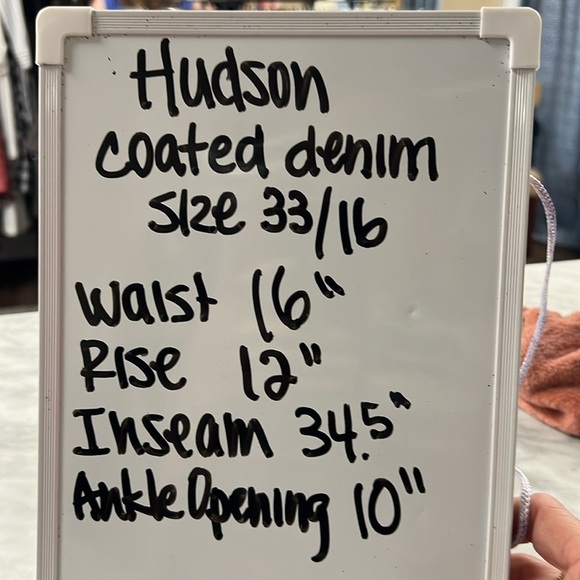 Hudson
coated denim
size 33/16
Waist 16"
Rise 12"
Inseam 34.5"
Ankle Opening 10"